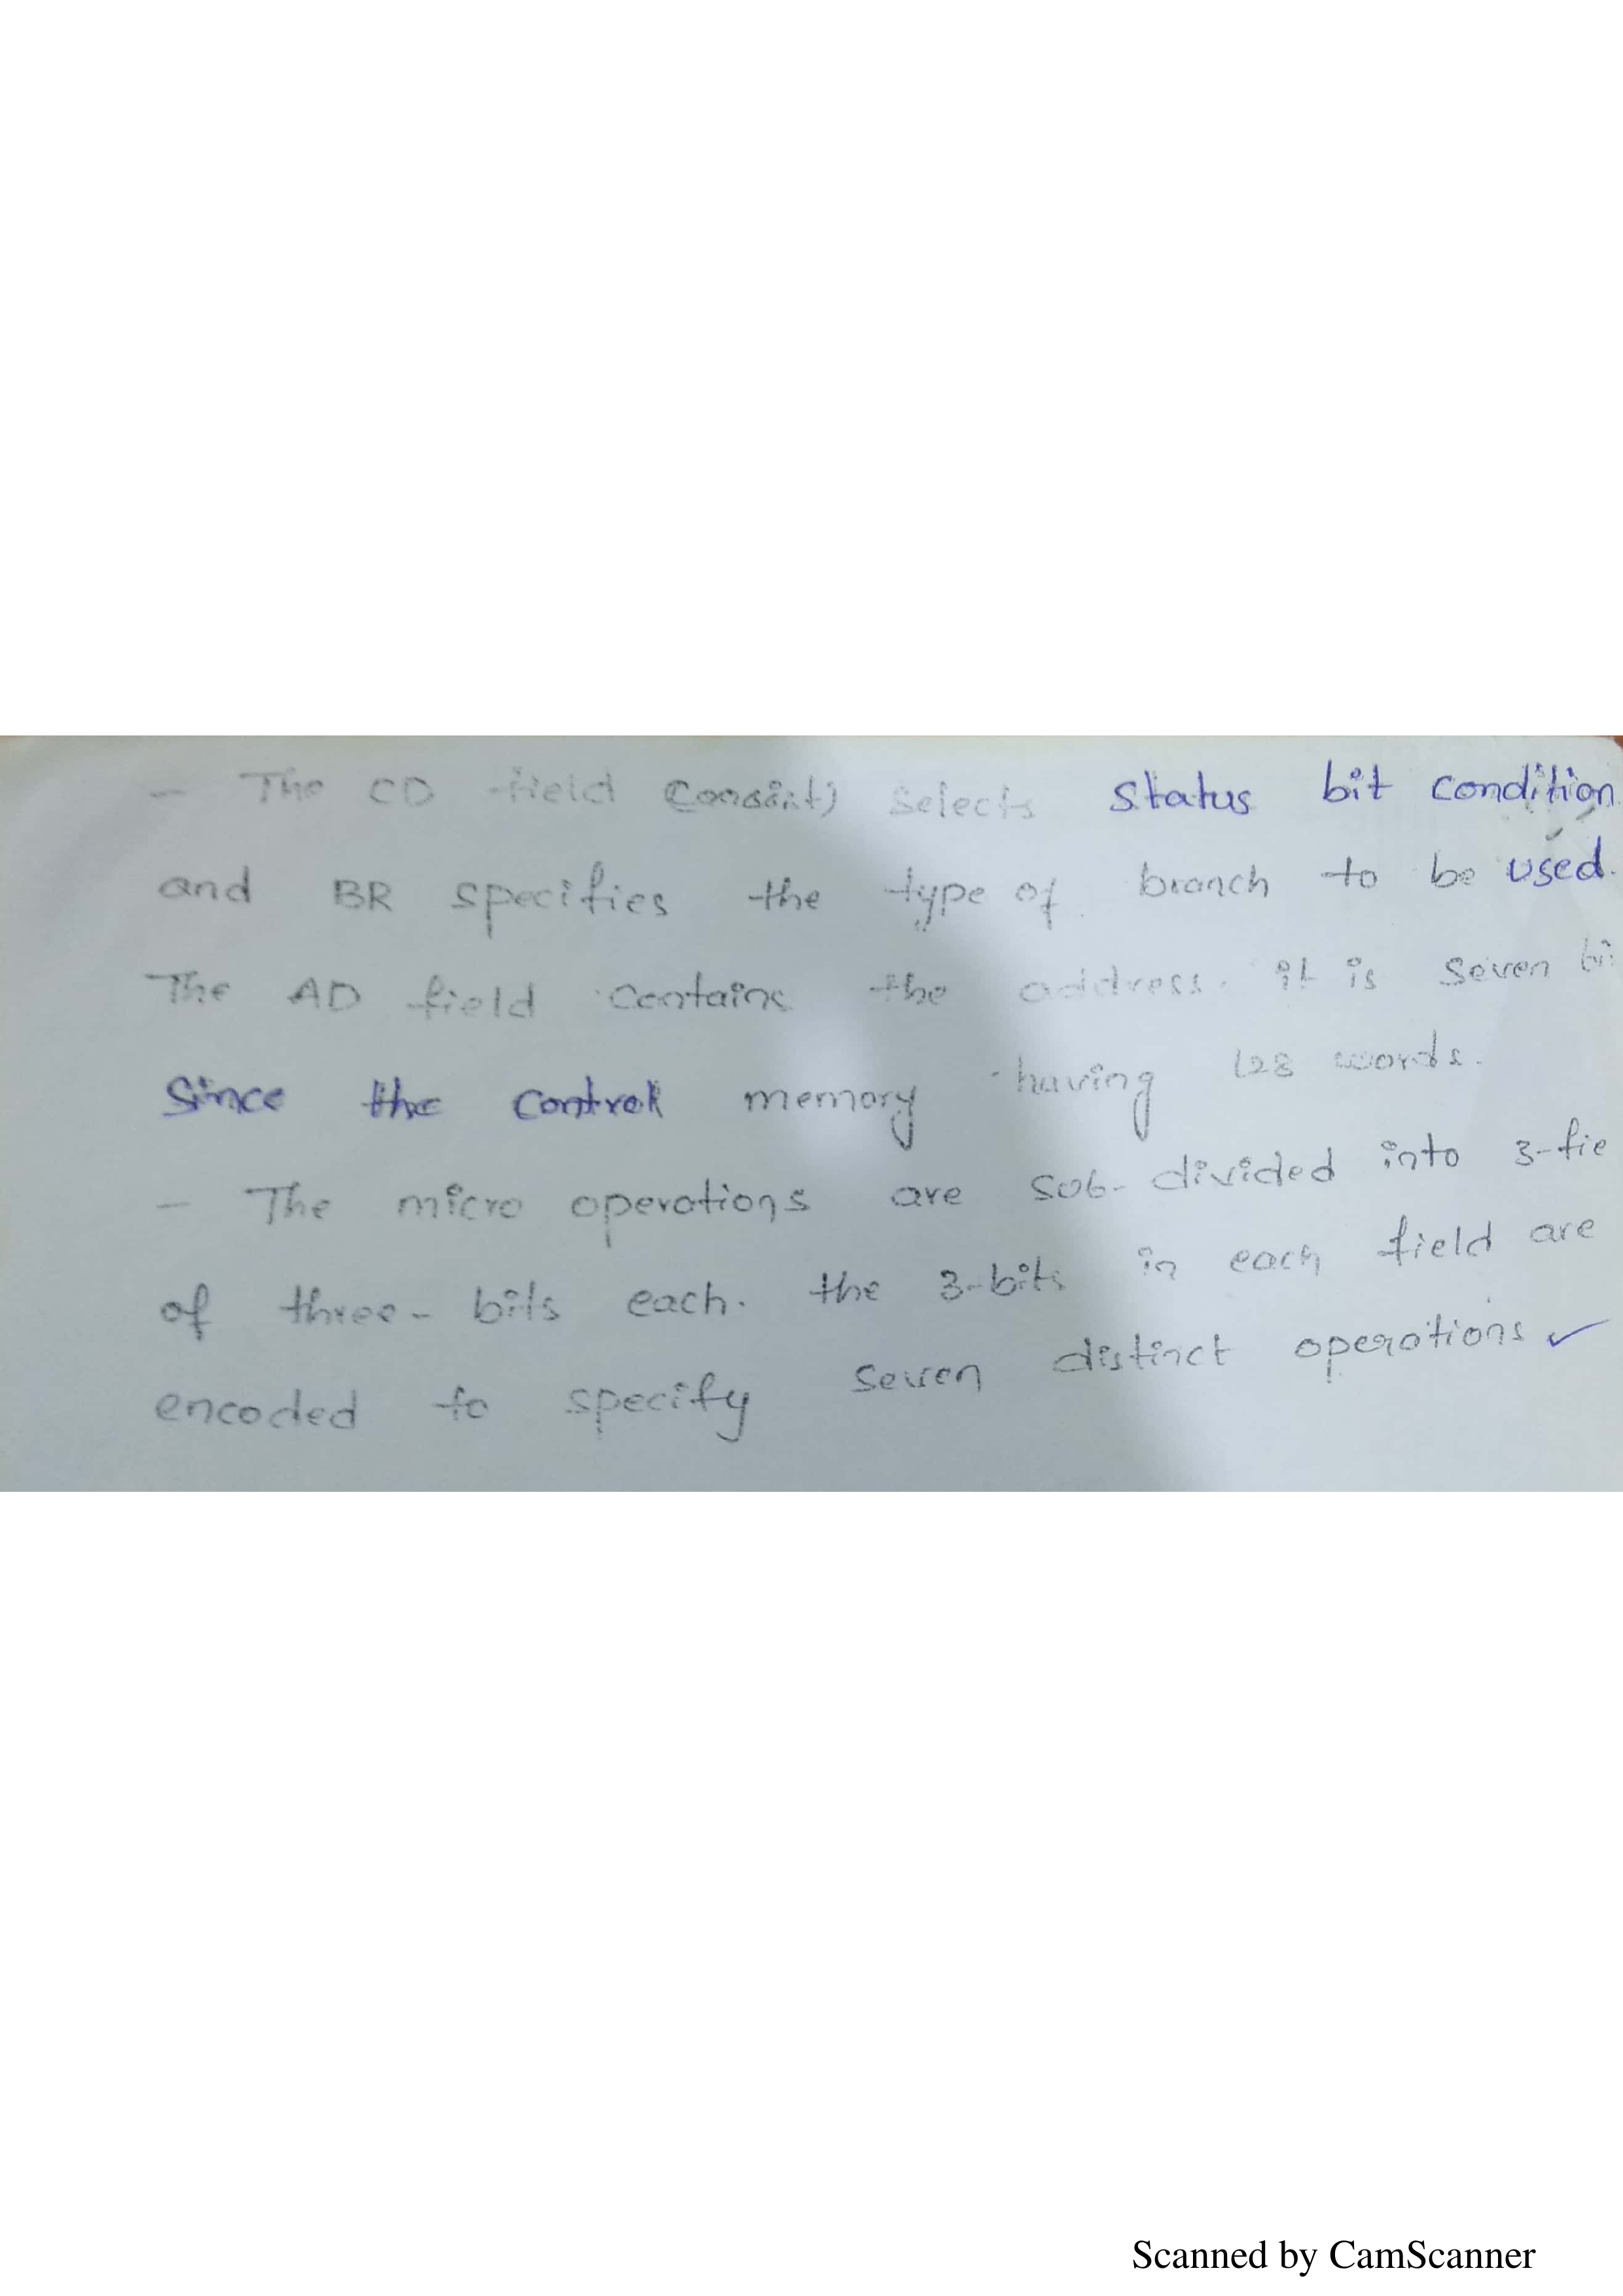 - The CD field selects Status bit condition
and BR specifies the type of branch to be used.
The AD field contains the address. it is seven bi
Since the control memory having 128 words.
- The micro operations are sub-divided into 3-fie
of three-bits each. the 3-bits in each field are
encoded to specify seven distinct operations ✓
Scanned by CamScanner